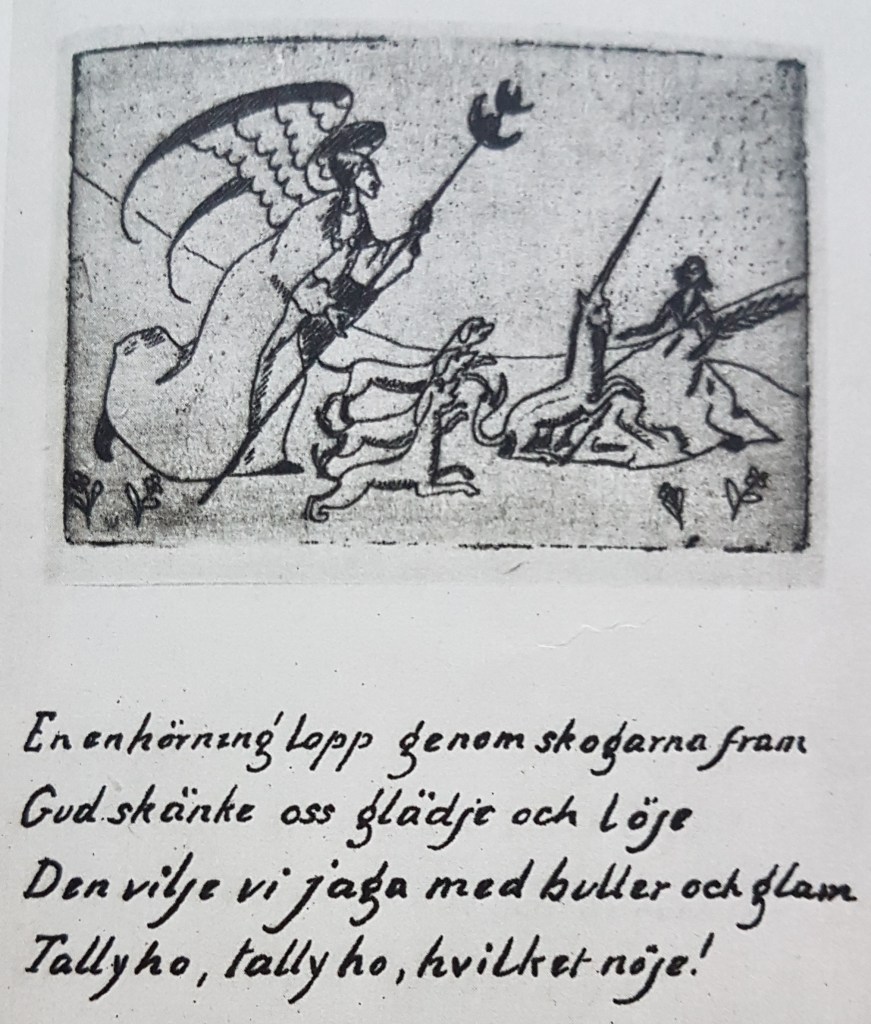 En enhörning lopp genom skogarna fram
Gud skänke oss glädje och löje
Den vilje vi jaga med buller och glam
Tallyho, tallyho, hvilket nöje!